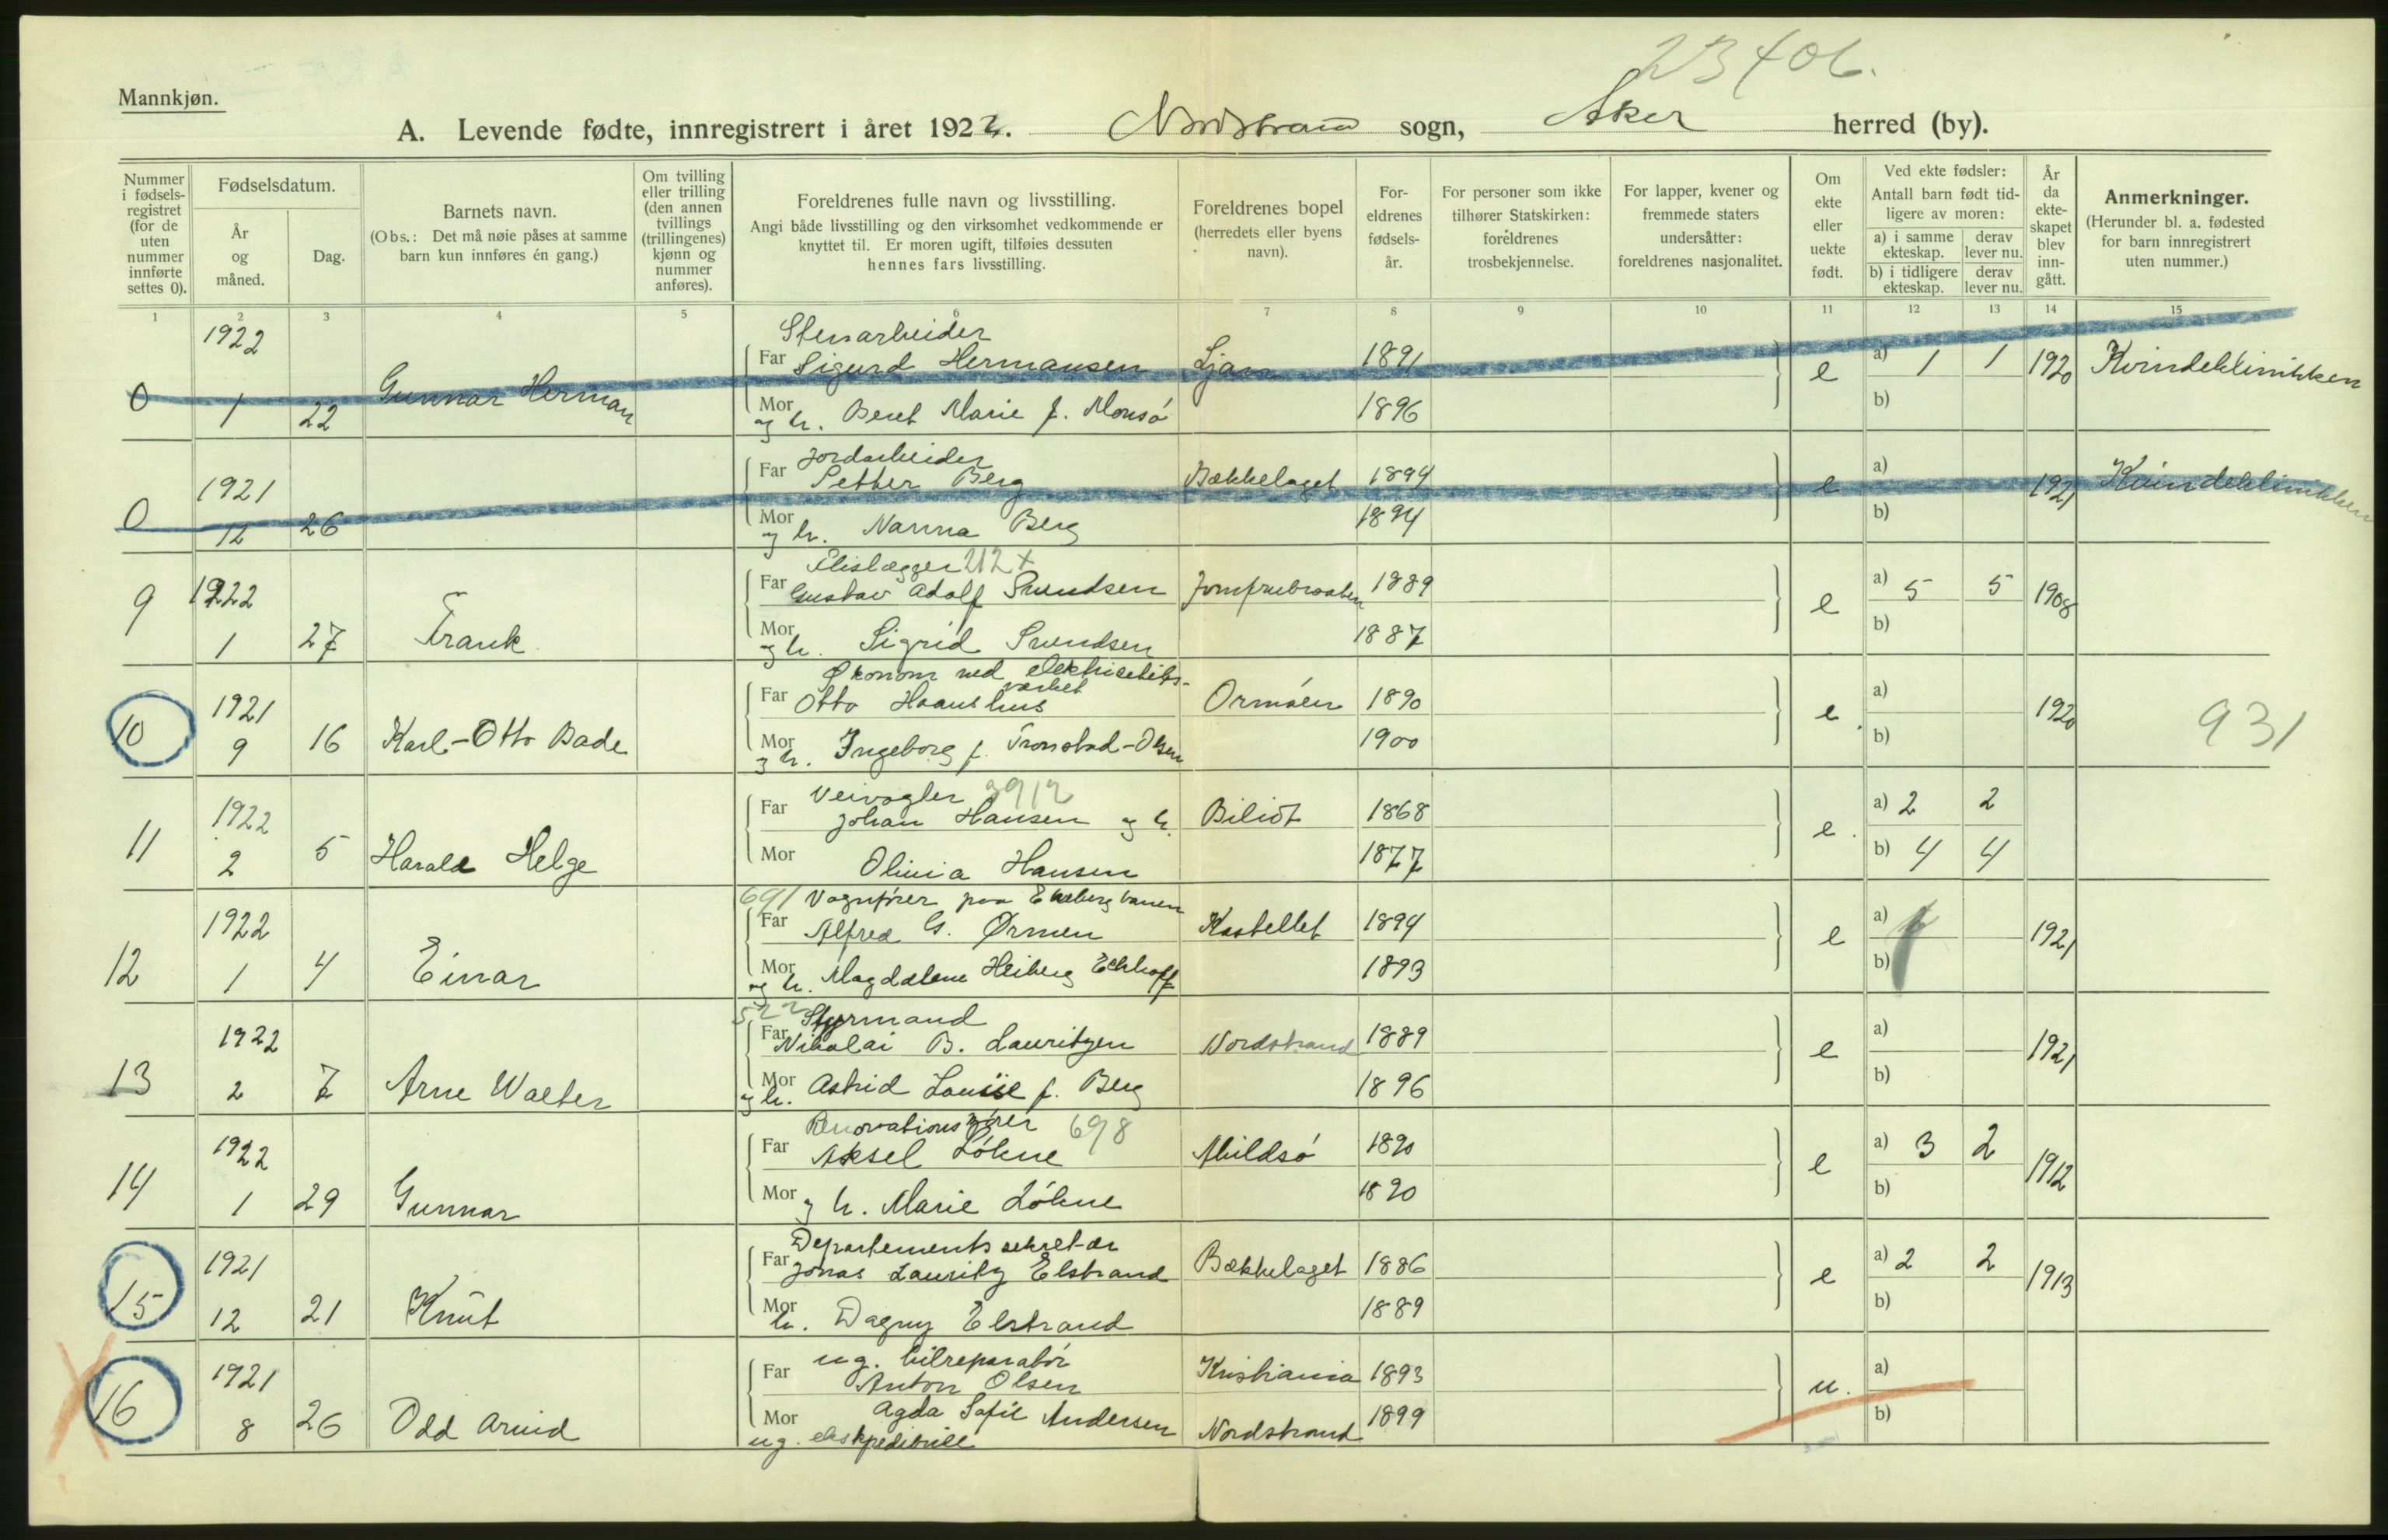 23406.
Mannkjøn.
A. Levende fødte, innregistrert i året 1922. Nordstrand sogn, Aker herred (by).
Nummer i fødsels-registret (for de uten nummer innførte settes 0).
Fødselsdatum.
År og måned.
Dag.
Barnets navn.
(Obs.: Det må nøie påses at samme barn kun innføres én gang.)
Om tvilling eller trilling (den annen tvillings (trillingenes) kjønn og nummer anføres).
Foreldrenes fulle navn og livsstilling.
Angi både livsstilling og den virksomhet vedkommende er knyttet til. Er moren ugift, tilføies dessuten hennes fars livsstilling.
Foreldrenes bopel (herredets eller byens navn).
For-eldrenes fødsels-år.
For personer som ikke tilhører Statskirken: foreldrenes trosbekjennelse.
For lapper, kvener og fremmede staters undersåtter: foreldrenes nasjonalitet.
Om ekte eller uekte født.
Ved ekte fødsler: Antall barn født tid-ligere av moren:
a) i samme ekteskap. derav lever nu.
b) i tidligere ekteskap. derav lever nu.
År da ekte-skapet blev inn-gått.
Anmerkninger.
(Herunder bl. a. fødested for barn innregistrert uten nummer.)
1 2 3 4 5 6 7 8 9 10 11 12 13 14 15
1922 Stenarbeider
Far Sigurd Hermansen Ljan 1891 e a) 1 1 1920 Kvindeklinikken
0 1 22 Gunnar Herman
Mor og h. Beret Marie f. Monsø 1896 b)
Jordarbeider
1921 Far Petter Berg Bækkelaget 1894 e a) 1921 Kvindeklinikken
0 12 26
Mor og h. Nanna Berg 1894 b)
Flislægger 212 x
9 1922 Far Gustav Adolf Svendsen Jomfrubraaten 1889 e a) 5 5 1908
1 27 Frank
Mor og h. Sigrid Svendsen 1887 b)
Økonom ved elektricitets-
værket
10 1921 Far Otto Haanshus Ormøen 1890 e a) 1920 931
9 16 Karl-Otto Bade
Mor og h. Ingeborg f. Tronstad-Olsen 1900 b)
Veivogter 3912
11 1922 Far Johan Hansen og h. Bilidt 1868 e. a) 2 2
2 5 Harald Helge
Mor Olivia Hansen 1877 b) 4 4
691 Vognfører paa Ekebergbanen
12 1922 Far Alfred G. Ørmen Kastellet 1894 e a) 1921
1 4 Einar
Mor og h. Magdalene Heiberg Eckhoff 1893 b)
522 Styrmand
13 1922 Far Nikolai B. Lauritzen Nordstrand 1889 e a) 1921
2 7 Arne Walter
Mor og h. Astrid Louise f. Berg 1896 b)
698
14 1922 Far Aksel Løkne Abildsø 1890 e a) 3 2 1912
1 29 Gunnar
Mor og h. Marie Løkne 1890 b)
Departementssekretær
15 1921 Far Jonas Lauritz Elstrand Bækkelaget 1886 e a) 2 2 1913
12 21 Knut
Mor h. Dagny Elstrand 1889 b)
ug. bilreparatør
16 1921 Far Anton Olsen Kristiania 1893 u. a)
8 26 Odd Arvid
Mor Agda Sofie Andersen Nordstrand 1899 b)
ug. ekspeditrice